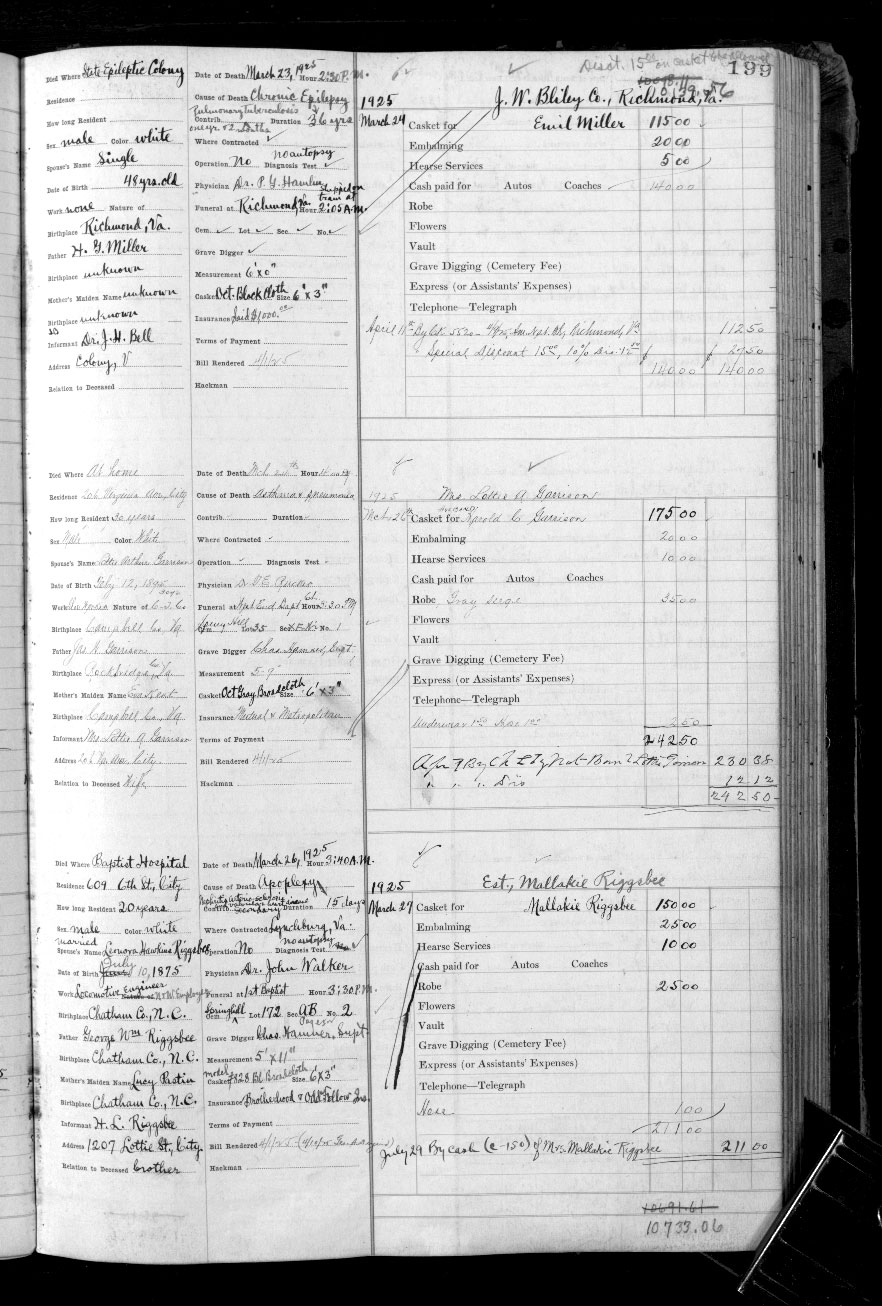 Disct. 15 on casket
199
10098.11
10139.56
Died Where State Epileptic Colony
Residence
How long Resident
Sex male Color white
Spouse's Name Single
Date of Birth 48 yrs. old
Work none Nature of
Birthplace Richmond, Va.
Father H. G. Miller
Birthplace unknown
Mother's Maiden Name unknown
Birthplace unknown
Informant Dr. J. H. Bell
Address Colony, V
Relation to Deceased
Date of Death March 23, 1925 Hour 2:30 P.M.
Cause of Death Chronic Epilepsy
Pulmonary tuberculosis
Contrib. Duration 36 yrs
one yr. & 2 mths
Where Contracted ✓
no autopsy
Operation No Diagnosis Test ✓
Physician Dr. P. G. Hamlin
shipped on train at
Funeral at Richmond, Va. Hour 2:05 A.M.
Cem. ✓ Lot ✓ Sec. ✓ No. ✓
Grave Digger ✓
Measurement 6' x 0"
Casket Oct. Black Cloth Size 6' x 3"
Insurance paid $1000.00
Terms of Payment
Bill Rendered 4/1/25
Hackman
1925 J. W. Bliley Co., Richmond, Va.
March 24 Casket for Emil Miller 115 00
Embalming 20 00
Hearse Services 5 00
Cash paid for Autos Coaches 140 00
Robe
Flowers
Vault
Grave Digging (Cemetery Fee)
Express (or Assistants' Expenses)
Telephone—Telegraph
April 11th By Ck. 5520 Am. Nat. Bk, Richmond, Va 112 50
Special Discount 15.00, 10% Dis. 12.50 27 50
140 00 140 00
Died Where At home
Residence Virginia Ave., City
How long Resident 30 years
Sex Male Color White
Spouse's Name Arthur Garrison
Date of Birth Feby 12, 1895
Work Nature of
Birthplace Campbell Co. Va
Father Jas. Garrison
Birthplace Rockbridge Co., Va.
Mother's Maiden Name Kent
Birthplace Campbell Co., Va
Informant Mrs. Lottie A Garrison
Address Va. Ave. City
Relation to Deceased Wife
Date of Death Mch. Hour
Cause of Death Asthma & Pneumonia
Contrib. Duration
Where Contracted
Operation Diagnosis Test
Physician Dr
Funeral at West End Bapt Ch. Hour 3:30 PM
Cem. Lot 35 Sec. No. 1
Grave Digger Chas. Hamner, Supt.
Measurement 5-9
Casket Oct Gray Broadcloth Size 6' x 3"
Insurance Mutual & Metropolitan
Terms of Payment
Bill Rendered 4/1/25
Hackman
1925 Mrs. Lottie A Garrison
Mch 26th Casket for Harold C Garrison 175 00
Embalming 20 00
Hearse Services 10 00
Cash paid for Autos Coaches
Robe Gray Serge 35 00
Flowers
Vault
Grave Digging (Cemetery Fee)
Express (or Assistants' Expenses)
Telephone—Telegraph
Underwear 1.50 Hose 1.00 2 50
242 50
Apr 7 By Ck 230 38
" " " Dis 12 12
242 50
Died Where Baptist Hospital
Residence 609 6th St., City
How long Resident 20 years
Sex male Color white
married
Spouse's Name Leonora Hawkins Riggsbee
July
Date of Birth 10, 1875
Work Locomotive Engineer Nature of N&W Employee
Birthplace Chatham Co., N.C.
Father George Wm Riggsbee
Birthplace Chatham Co., N.C.
Mother's Maiden Name Lucy Pastin
Birthplace Chatham Co., N.C.
Informant H. L. Riggsbee
Address 1207 Lottie St., City.
Relation to Deceased brother
Date of Death March 26, 1925 Hour 3:40 A.M.
Cause of Death Apoplexy
Contrib. Secondary Duration 15 days
Where Contracted Lynchburg, Va.
no autopsy
Operation No Diagnosis Test
Physician Dr. John Walker
Funeral at 1st Baptist Hour 3:30 P.M.
Cem. Springhill Lot 172 Sec. AB No. 2
Grave Digger Chas. Hamner, Supt.
Measurement 5' x 11"
model
Casket 7828 Bl. Broadcloth Size 6' x 3"
Insurance Brotherhood & Odd Fellow Ins.
Terms of Payment
Bill Rendered 4/1/25
Hackman
1925 Est., Mallakie Riggsbee
March 27 Casket for Mallakie Riggsbee 150 00
Embalming 25 00
Hearse Services 10 00
Cash paid for Autos Coaches
Robe 25 00
Flowers
Vault
Grave Digging (Cemetery Fee)
Express (or Assistants' Expenses)
Telephone—Telegraph
Hose 1 00
211 00
July 29 By Cash (C-150) of Mrs. Mallakie Riggsbee 211 00
10691.61
10733.06